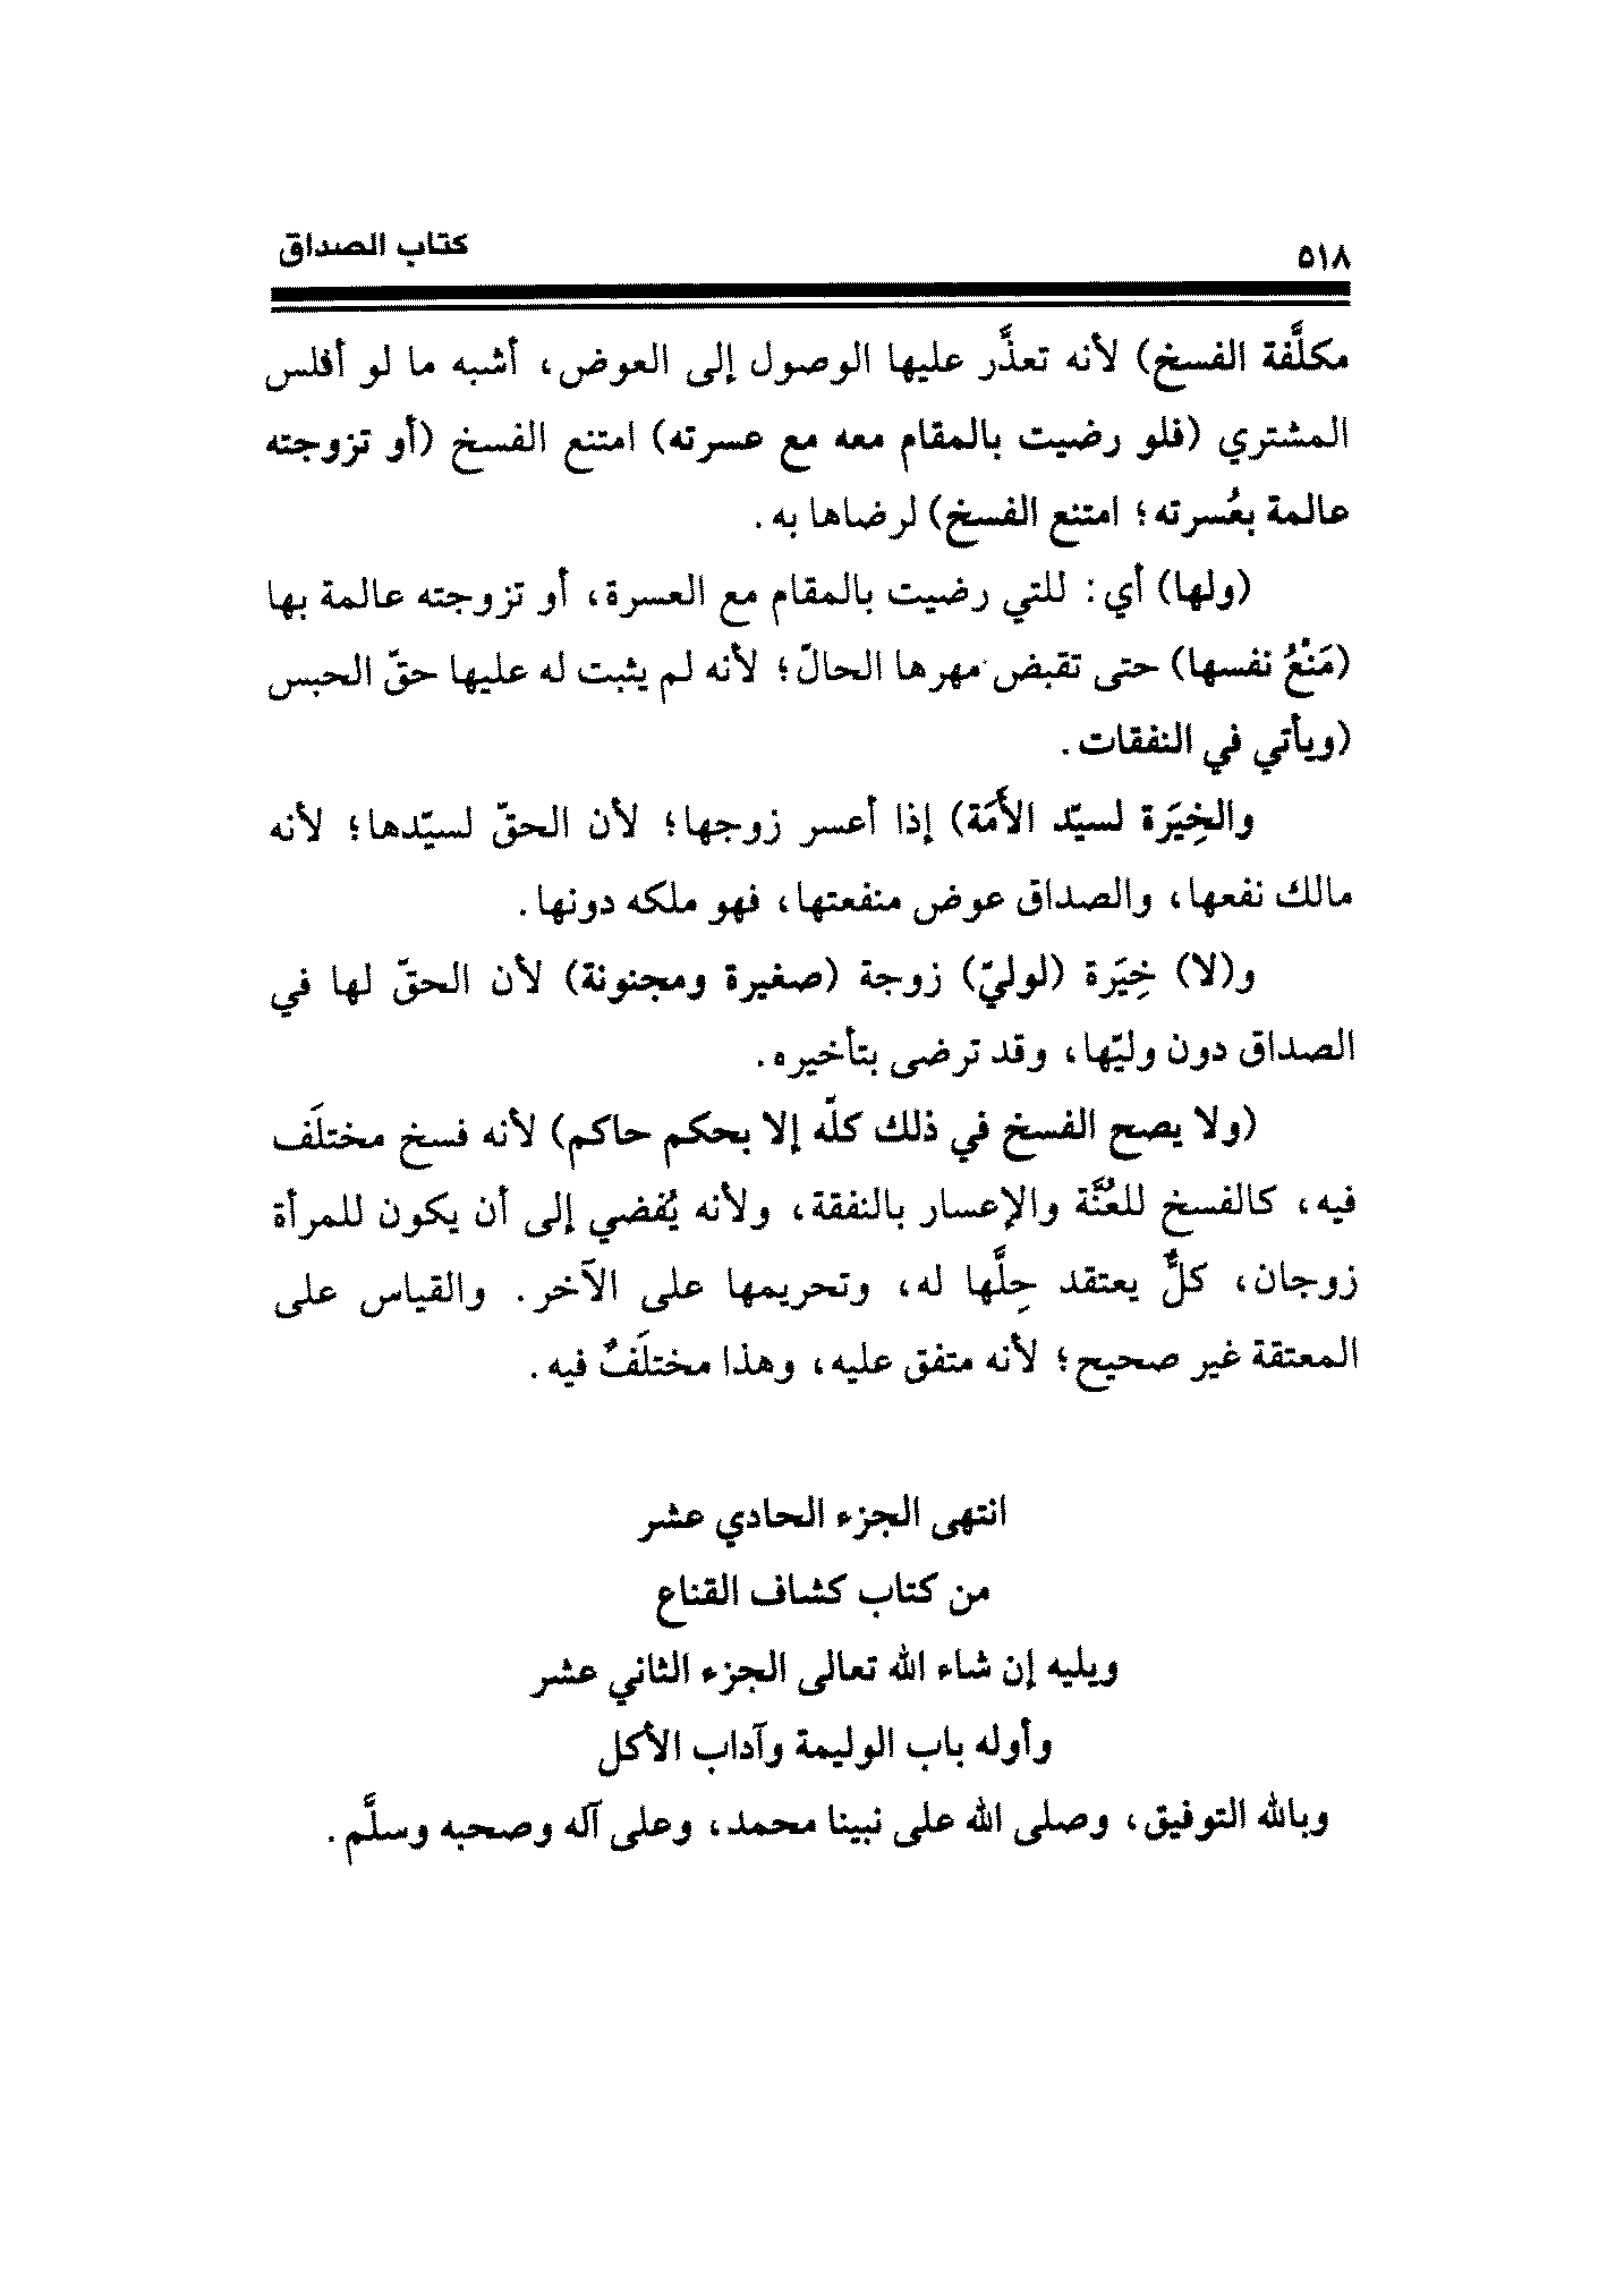 ٥١٨
كتاب الصداق
مكلَّفة الفسخ) لأنه تعذَّر عليها الوصول إلى العوض، أشبه ما لو أفلس
المشتري (فلو رضيت بالمقام معه مع عسرته) امتنع الفسخ (أو تزوجته
عالمة بعُسرته؛ امتنع الفسخ) لرضاها به.
(ولها) أي: للتي رضيت بالمقام مع العسرة، أو تزوجته عالمة بها
(مَنْعُ نفسها) حتى تقبض مهرها الحالّ؛ لأنه لم يثبت له عليها حقّ الحبس
(ويأتي في النفقات.
والخِيَرة لسيّد الأَمَة) إذا أعسر زوجها؛ لأن الحقّ لسيّدها؛ لأنه
مالك نفعها، والصداق عوض منفعتها، فهو ملكه دونها.
و(لا) خِيَرة (لوليّ) زوجة (صغيرة ومجنونة) لأن الحقّ لها في
الصداق دون وليّها، وقد ترضى بتأخيره.
(ولا يصح الفسخ في ذلك كلّه إلا بحكم حاكم) لأنه فسخ مختلَف
فيه، كالفسخ للعُنَّة والإعسار بالنفقة، ولأنه يُفضي إلى أن يكون للمرأة
زوجان، كلٌّ يعتقد حِلَّها له، وتحريمها على الآخر. والقياس على
المعتقة غير صحيح؛ لأنه متفق عليه، وهذا مختلَفٌ فيه.
انتهى الجزء الحادي عشر
من كتاب كشاف القناع
ويليه إن شاء الله تعالى الجزء الثاني عشر
وأوله باب الوليمة وآداب الأكل
وبالله التوفيق، وصلى الله على نبينا محمد، وعلى آله وصحبه وسلَّم.